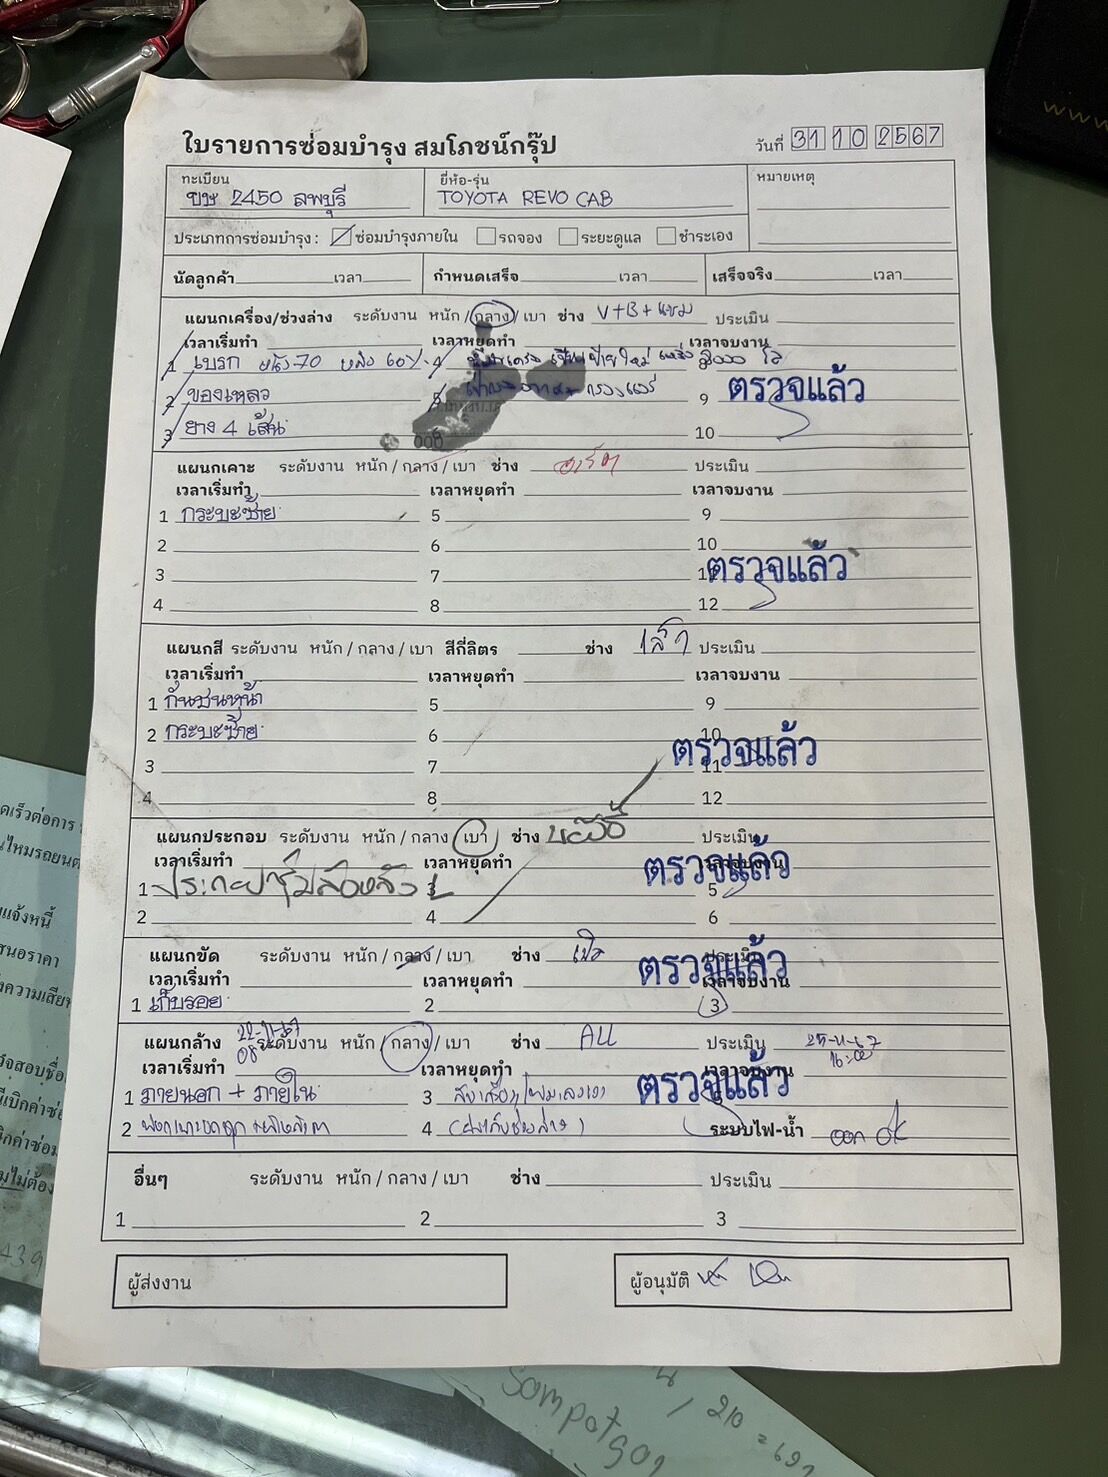 ใบรายการซ่อมบำรุง สมโภชน์กรุ๊ป
วันที่ 31 10 2567
ทะเบียน ยี่ห้อ-รุ่น หมายเหตุ
บษ 2450 ลพบุรี TOYOTA REVO CAB
ประเภทการซ่อมบำรุง : ซ่อมบำรุงภายใน รถจอง ระยะดูแล ชำระเอง
นัดลูกค้า เวลา กำหนดเสร็จ เวลา เสร็จจริง เวลา
แผนกเครื่อง/ช่วงล่าง ระดับงาน หนัก / กลาง / เบา ช่าง V+B+แชม ประเมิน
เวลาเริ่มทำ เวลาหยุดทำ เวลาจบงาน
1 เบรก หน้า 70 หลัง 60% 4
2 ของเหลว 5 กรองแอร์ 9 ตรวจแล้ว
3 ยาง 4 เส้น 10
แผนกเคาะ ระดับงาน หนัก / กลาง / เบา ช่าง ประเมิน
เวลาเริ่มทำ เวลาหยุดทำ เวลาจบงาน
1 กระบะซ้าย 5 9
2 6 10
3 7 11 ตรวจแล้ว
4 8 12
แผนกสี ระดับงาน หนัก / กลาง / เบา สีกี่ลิตร ช่าง ประเมิน
เวลาเริ่มทำ เวลาหยุดทำ เวลาจบงาน
1 กันชนหน้า 5 9
2 กระบะซ้าย 6 10
3 7 11 ตรวจแล้ว
4 8 12
แผนกประกอบ ระดับงาน หนัก / กลาง / เบา ช่าง ประเมิน
เวลาเริ่มทำ เวลาหยุดทำ เวลาจบงาน
1 3 5 ตรวจแล้ว
2 4 6
แผนกขัด ระดับงาน หนัก / กลาง / เบา ช่าง เปิล ประเมิน
เวลาเริ่มทำ เวลาหยุดทำ เวลาจบงาน ตรวจแล้ว
1 เก็บรอย 2 3
แผนกล้าง 22-11-67 ระดับงาน หนัก / กลาง / เบา ช่าง ALL ประเมิน 25-11-67
เวลาเริ่มทำ เวลาหยุดทำ เวลาจบงาน 16:00
1 ภายนอก + ภายใน 3 ตรวจแล้ว
2 4 ระบบไฟ-น้ำ ok
อื่นๆ ระดับงาน หนัก / กลาง / เบา ช่าง ประเมิน
1 2 3
ผู้ส่งงาน ผู้อนุมัติ